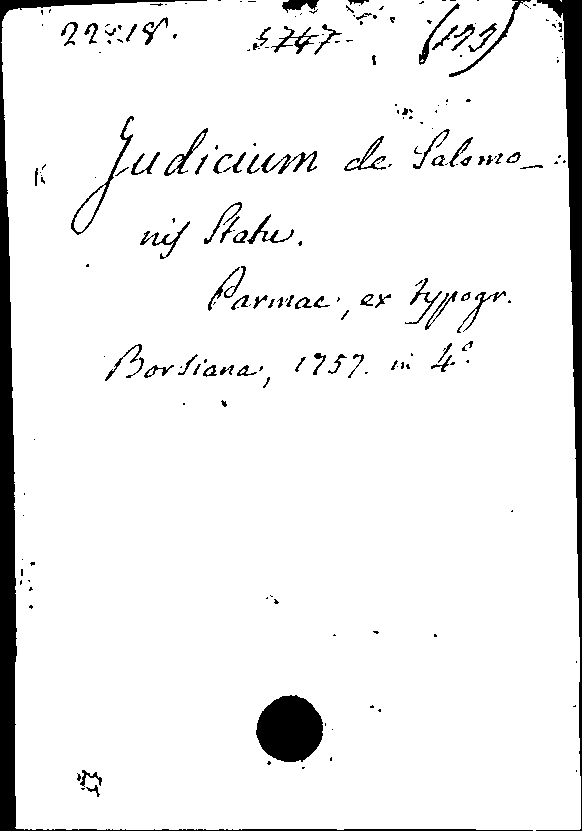 22818. 5747 (173)
Judicium de Salomo-
nis Statu.
Parmae, ex typogr.
Borsiana, 1757. in 4º.